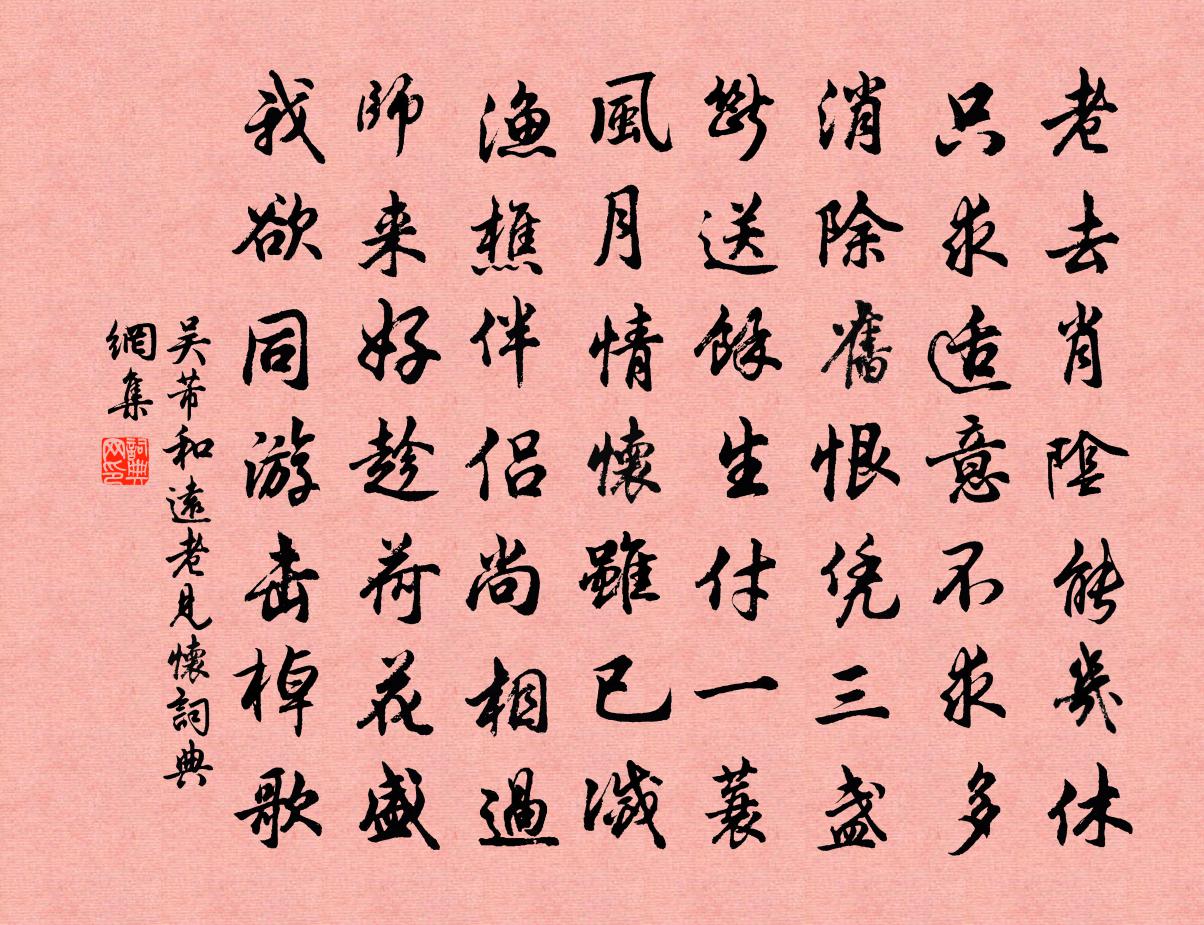 老去肖陰能幾休
只求适意不求多
消除舊恨凭三盏
斷送餘生付一蓑
風月情懷雖已減
漁樵伴侣尚相過
師来好趁荷花盛
我欲同游击棹歌
吴芾和遠老見懷詞典
網集
詞典
网印